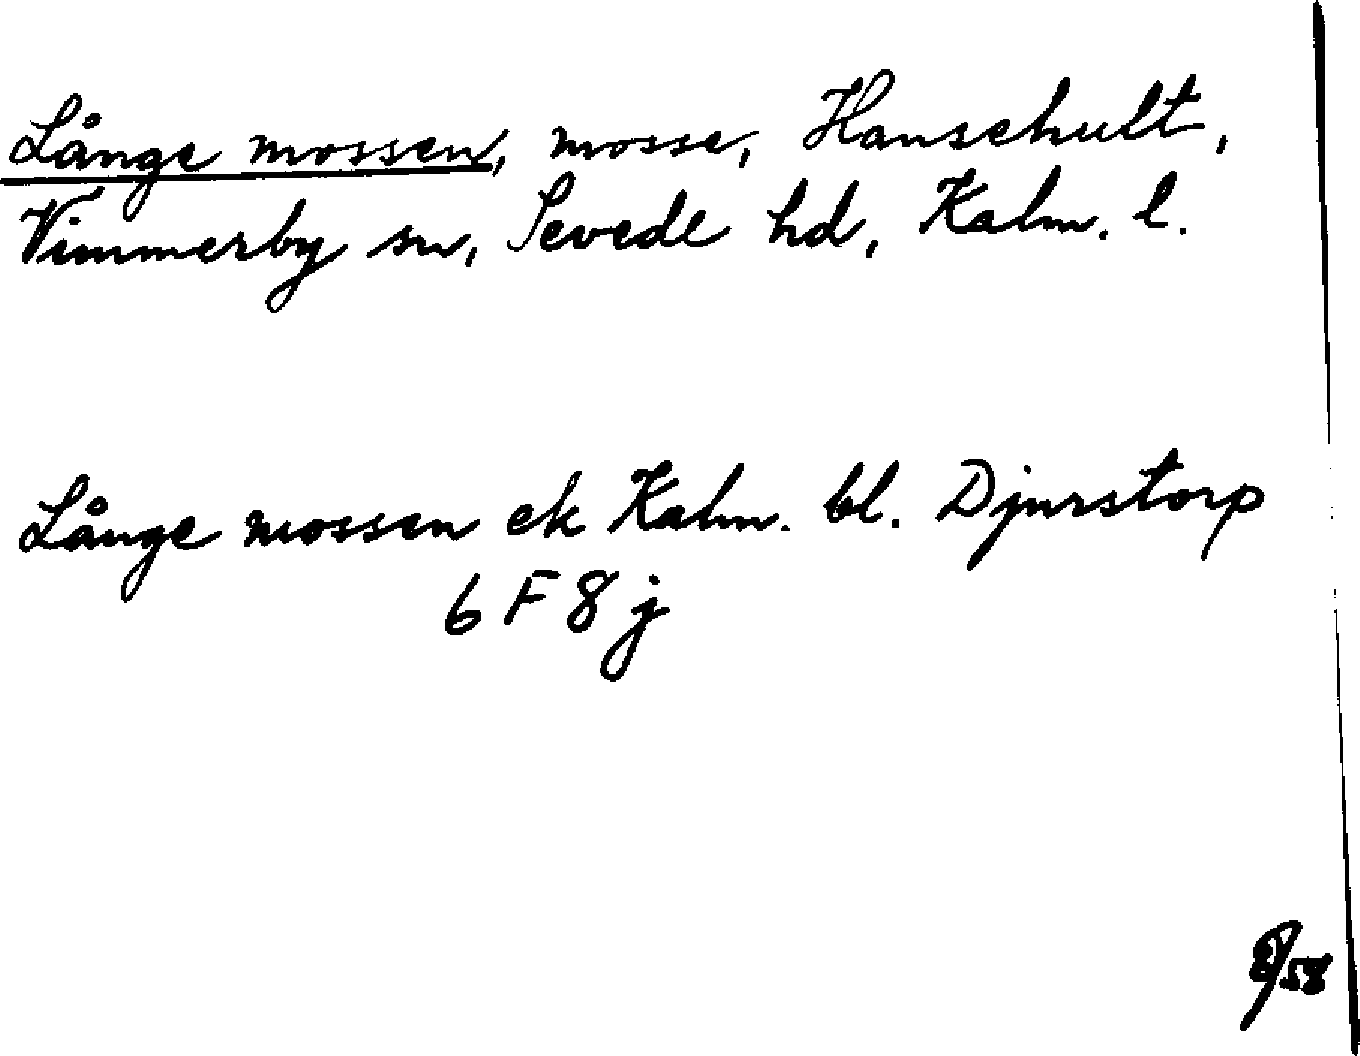 Långe mossen, mosse, Hansehult,
Vimmerby sn, Sevede hd, Kalm. l.
Långe mossen ek Kalm. bl. Djurstorp
6 F 8 j